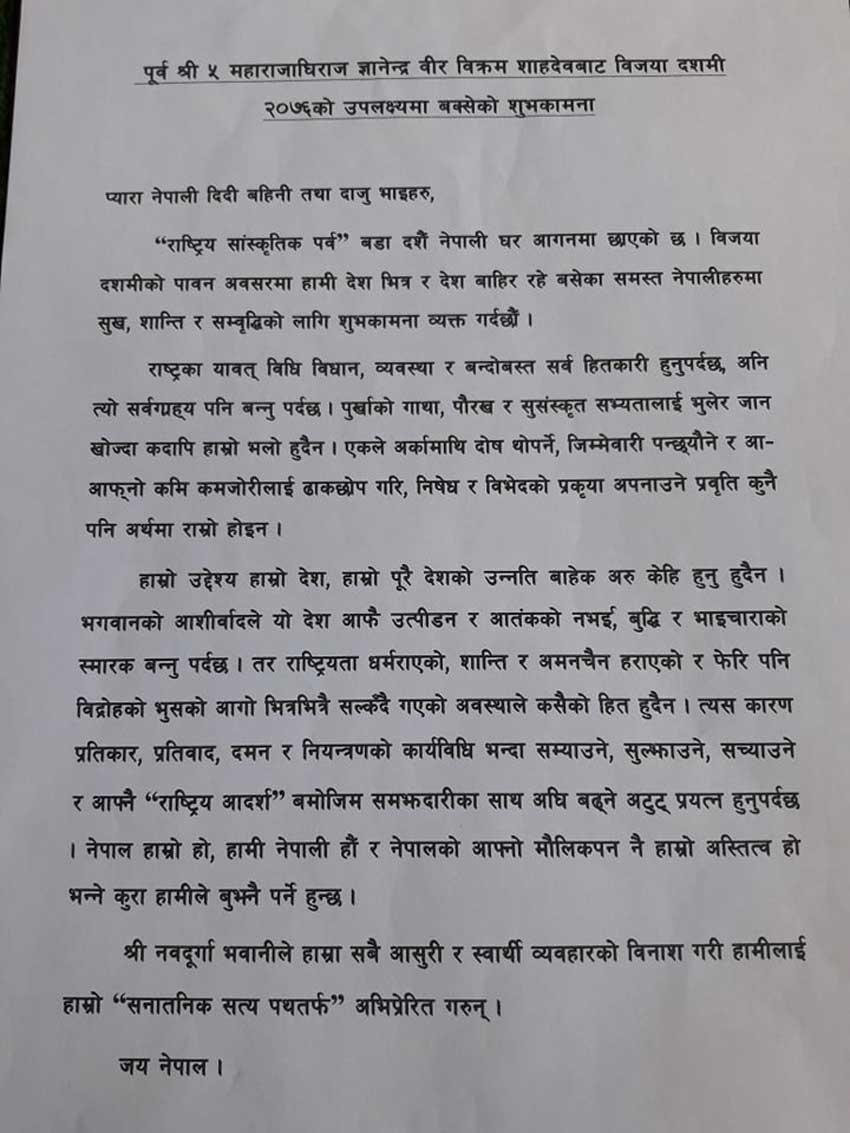 पूर्व श्री ५ महाराजाधिराज ज्ञानेन्द्र वीर विक्रम शाहदेवबाट विजया दशमी
२०७६को उपलक्ष्यमा बक्सेको शुभकामना
प्यारा नेपाली दिदी बहिनी तथा दाजु भाइहरु,
“राष्ट्रिय सांस्कृतिक पर्व” बडा दशैं नेपाली घर आगनमा छाएको छ । विजया
दशमीको पावन अवसरमा हामी देश भित्र र देश बाहिर रहे बसेका समस्त नेपालीहरुमा
सुख, शान्ति र सम्वृद्धिको लागि शुभकामना व्यक्त गर्दछौं ।
राष्ट्रका यावत् विधि विधान, व्यवस्था र बन्दोबस्त सर्व हितकारी हुनुपर्दछ, अनि
त्यो सर्वग्राह्य पनि बन्नु पर्दछ । पुर्खाको गाथा, पौरख र सुसंस्कृत सभ्यतालाई भुलेर जान
खोज्दा कदापि हाम्रो भलो हुदैन । एकले अर्कामाथि दोष थोपर्ने, जिम्मेवारी पन्छ्यौने र आ-
आफ्नो कमि कमजोरीलाई ढाकछोप गरि, निषेध र विभेदको प्रकृया अपनाउने प्रवृति कुनै
पनि अर्थमा राम्रो होइन ।
हाम्रो उद्देश्य हाम्रो देश, हाम्रो पूरै देशको उन्नति बाहेक अरु केहि हुनु हुदैन ।
भगवानको आशीर्वादले यो देश आफै उत्पीडन र आतंकको नभई, बुद्धि र भाइचाराको
स्मारक बन्नु पर्दछ । तर राष्ट्रियता धर्मराएको, शान्ति र अमनचैन हराएको र फेरि पनि
विद्रोहको भुसको आगो भित्रभित्रै सल्कँदै गएको अवस्थाले कसैको हित हुदैन । त्यस कारण
प्रतिकार, प्रतिवाद, दमन र नियन्त्रणको कार्यविधि भन्दा सम्याउने, सुल्झाउने, सच्याउने
र आफ्नै “राष्ट्रिय आदर्श” बमोजिम समझदारीका साथ अघि बढ्ने अटुट् प्रयत्न हुनुपर्दछ
। नेपाल हाम्रो हो, हामी नेपाली हौं र नेपालको आफ्नो मौलिकपन नै हाम्रो अस्तित्व हो
भन्ने कुरा हामीले बुझ्नै पर्ने हुन्छ ।
श्री नवदूर्गा भवानीले हाम्रा सबै आसुरी र स्वार्थी व्यवहारको विनाश गरी हामीलाई
हाम्रो “सनातनिक सत्य पथतर्फ” अभिप्रेरित गरुन् ।
जय नेपाल ।